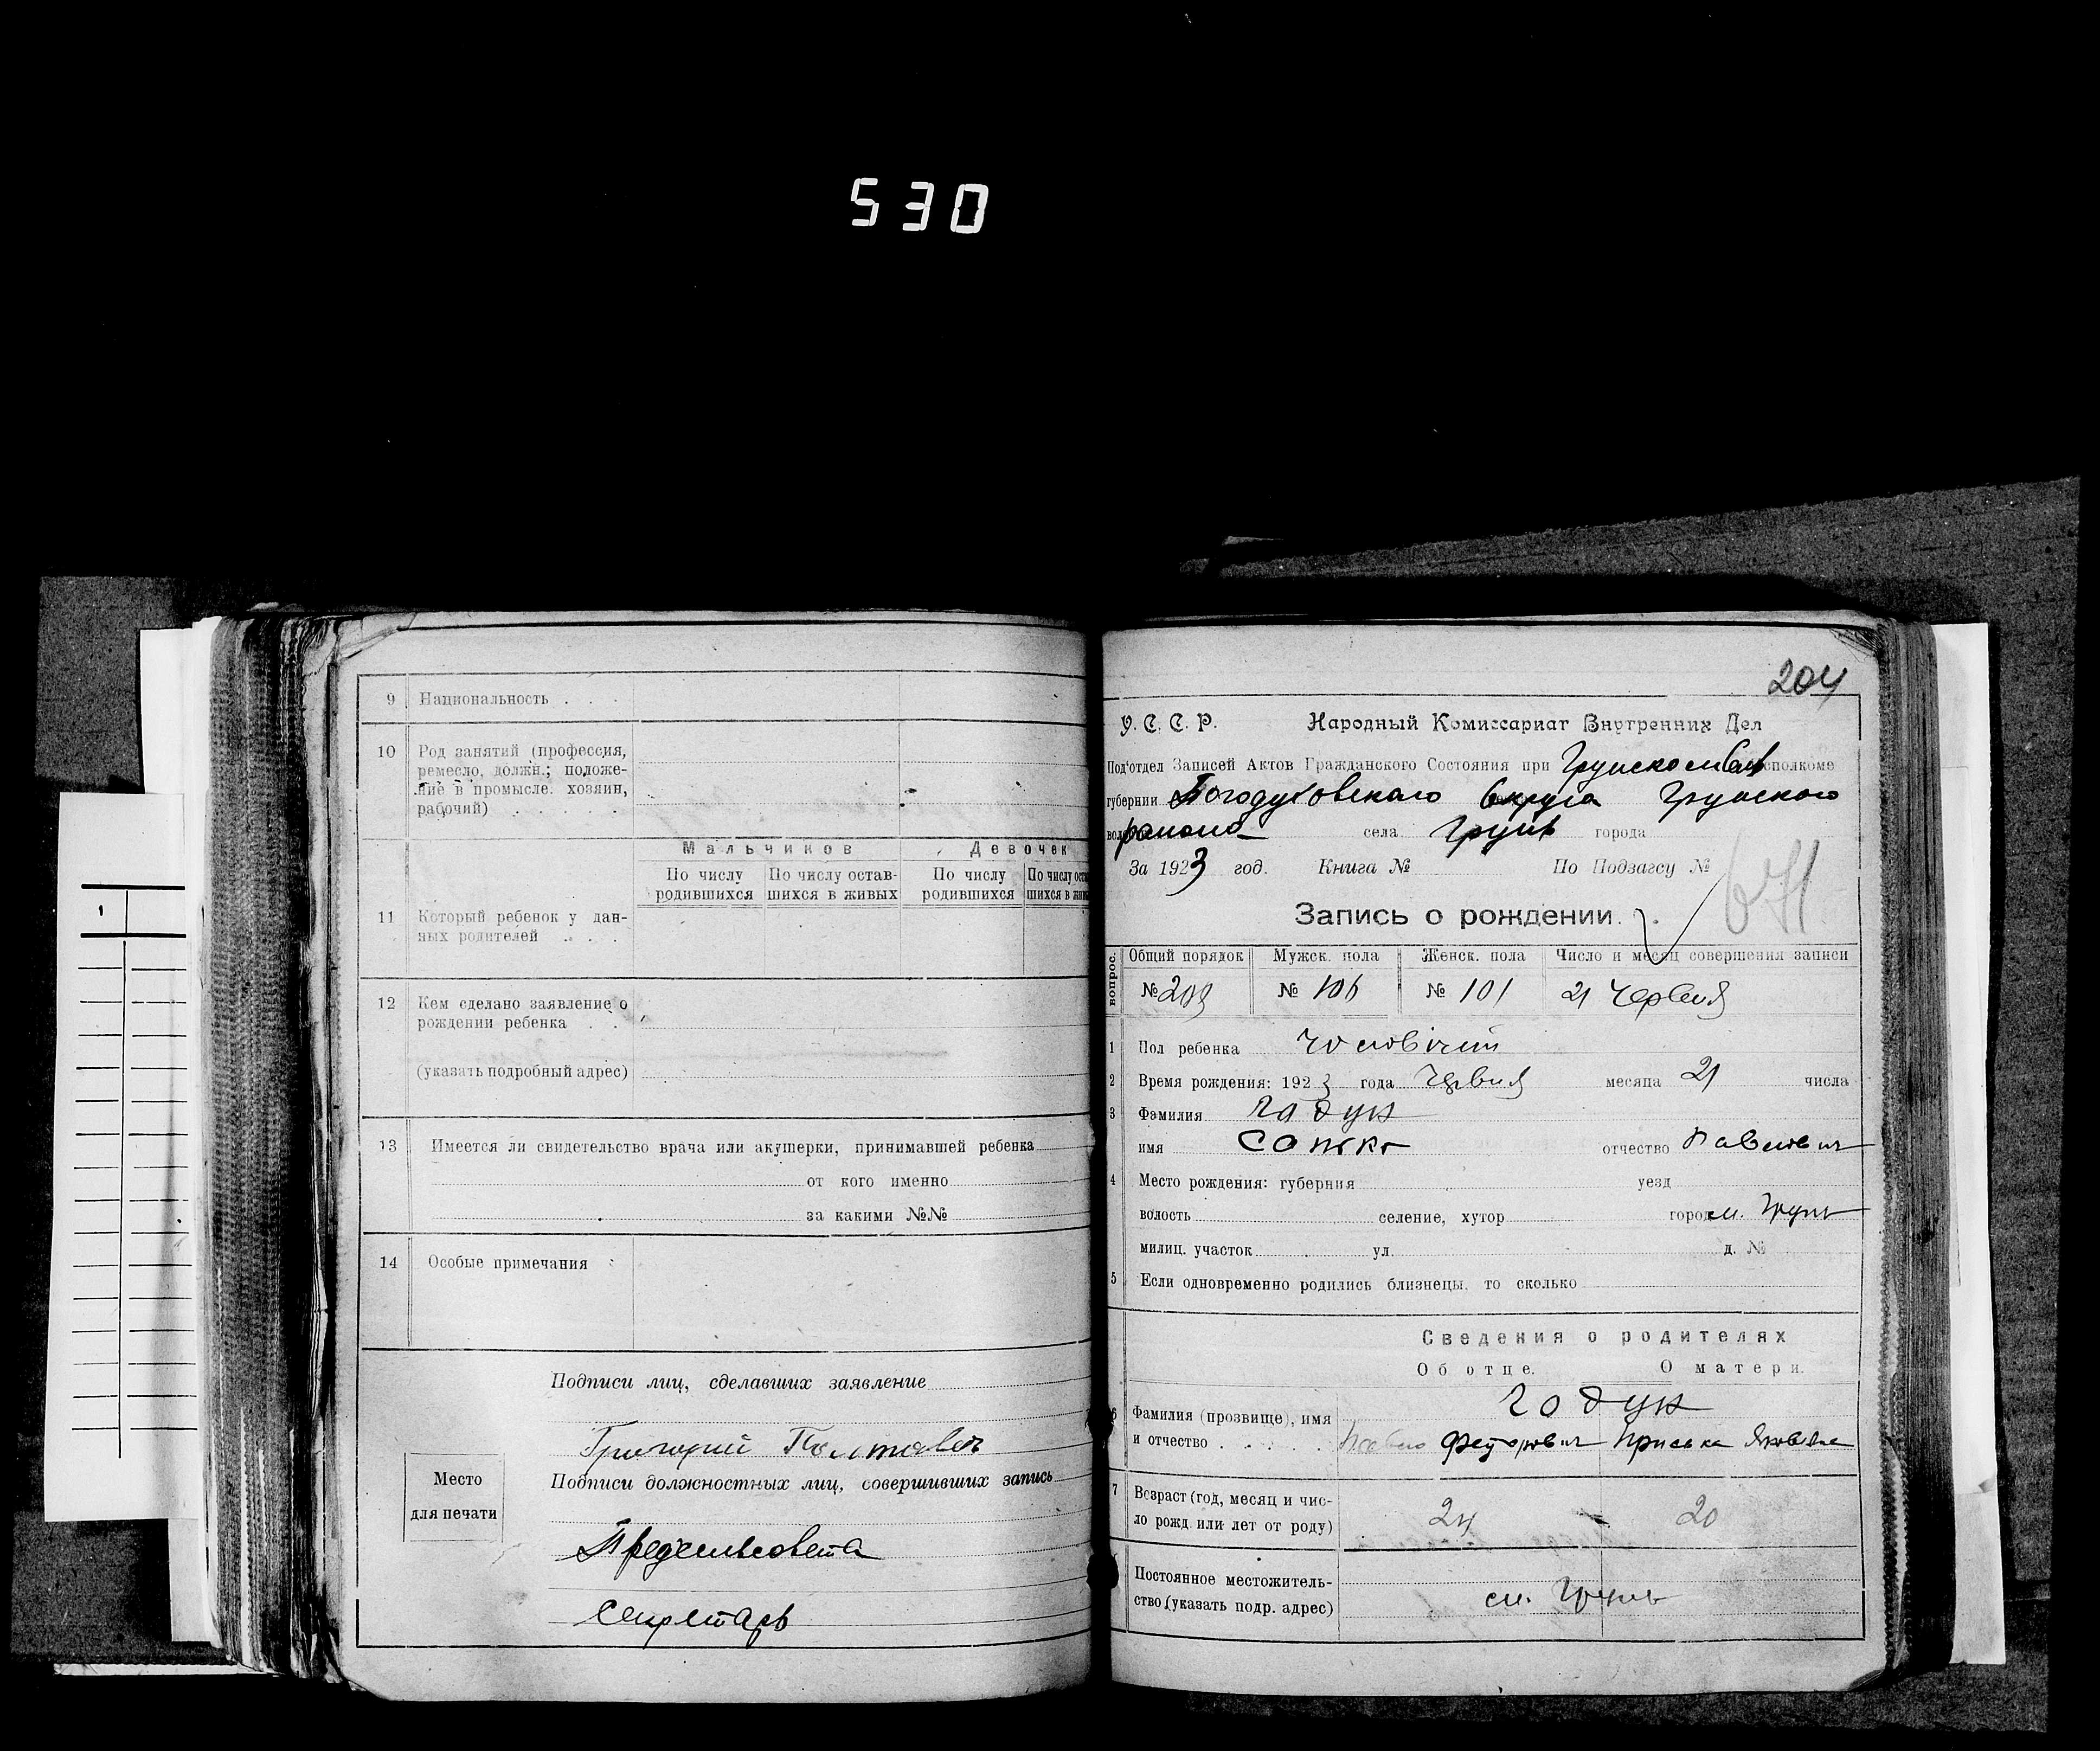 530
9 Национальность . .
10 Род занятий (профессия,
ремесло, должн.; положе-
ние в промысле: хозяин,
рабочий) . . . . .
Мальчиков Девочек
По числу По числу остав- По числу По числу оста
родившихся шихся в живых родившихся шихся в жив
11 Который ребенок у дан-
ных родителей . . .
12 Кем сделано заявление о
рождении ребенка . .
(указать подробный адрес)
13 Имеется ли свидетельство врача или акушерки, принимавшей ребенка
от кого именно
за какими №№
14 Особые примечания
Подписи лиц, сделавших заявление
Григорий Полтавец
Место
для печати
Подписи должностных лиц, совершивших запись
Предсельсовета
Секретарь
204
У. С. С. Р. Народный Комиссариат Внутренних Дел
Под'отдел Записей Актов Гражданского Состояния при исполкоме
губернии Богодуховского Округа Грунского
района села Грунь города
За 1923 год. Книга № По Подзагсу № 671
Запись о рождении.
вопрос. Общий порядок Мужск. пола Женск. пола Число и месяц совершения записи
№ 209 № 106 № 101 21 Червня
1 Пол ребенка чоловічий
2 Время рождения: 1923 года Червня месяца 21 числа
3 Фамилия Гадун
имя Сопко отчество Павлович
4 Место рождения: губерния уезд
волость селение, хутор город м. Грунь
милиц. участок ул. д. №
5 Если одновременно родились близнецы, то сколько
Сведения о родителях
Об отце. О матери.
Гадун
6 Фамилия (прозвище), имя
и отчество . . . . . Павло Федорович Приська Яковлев
7 Возраст (год, месяц и чис-
ло рожд. или лет от роду) 24 20
Постоянное местожитель-
ство (указать подр. адрес) см. Грунь